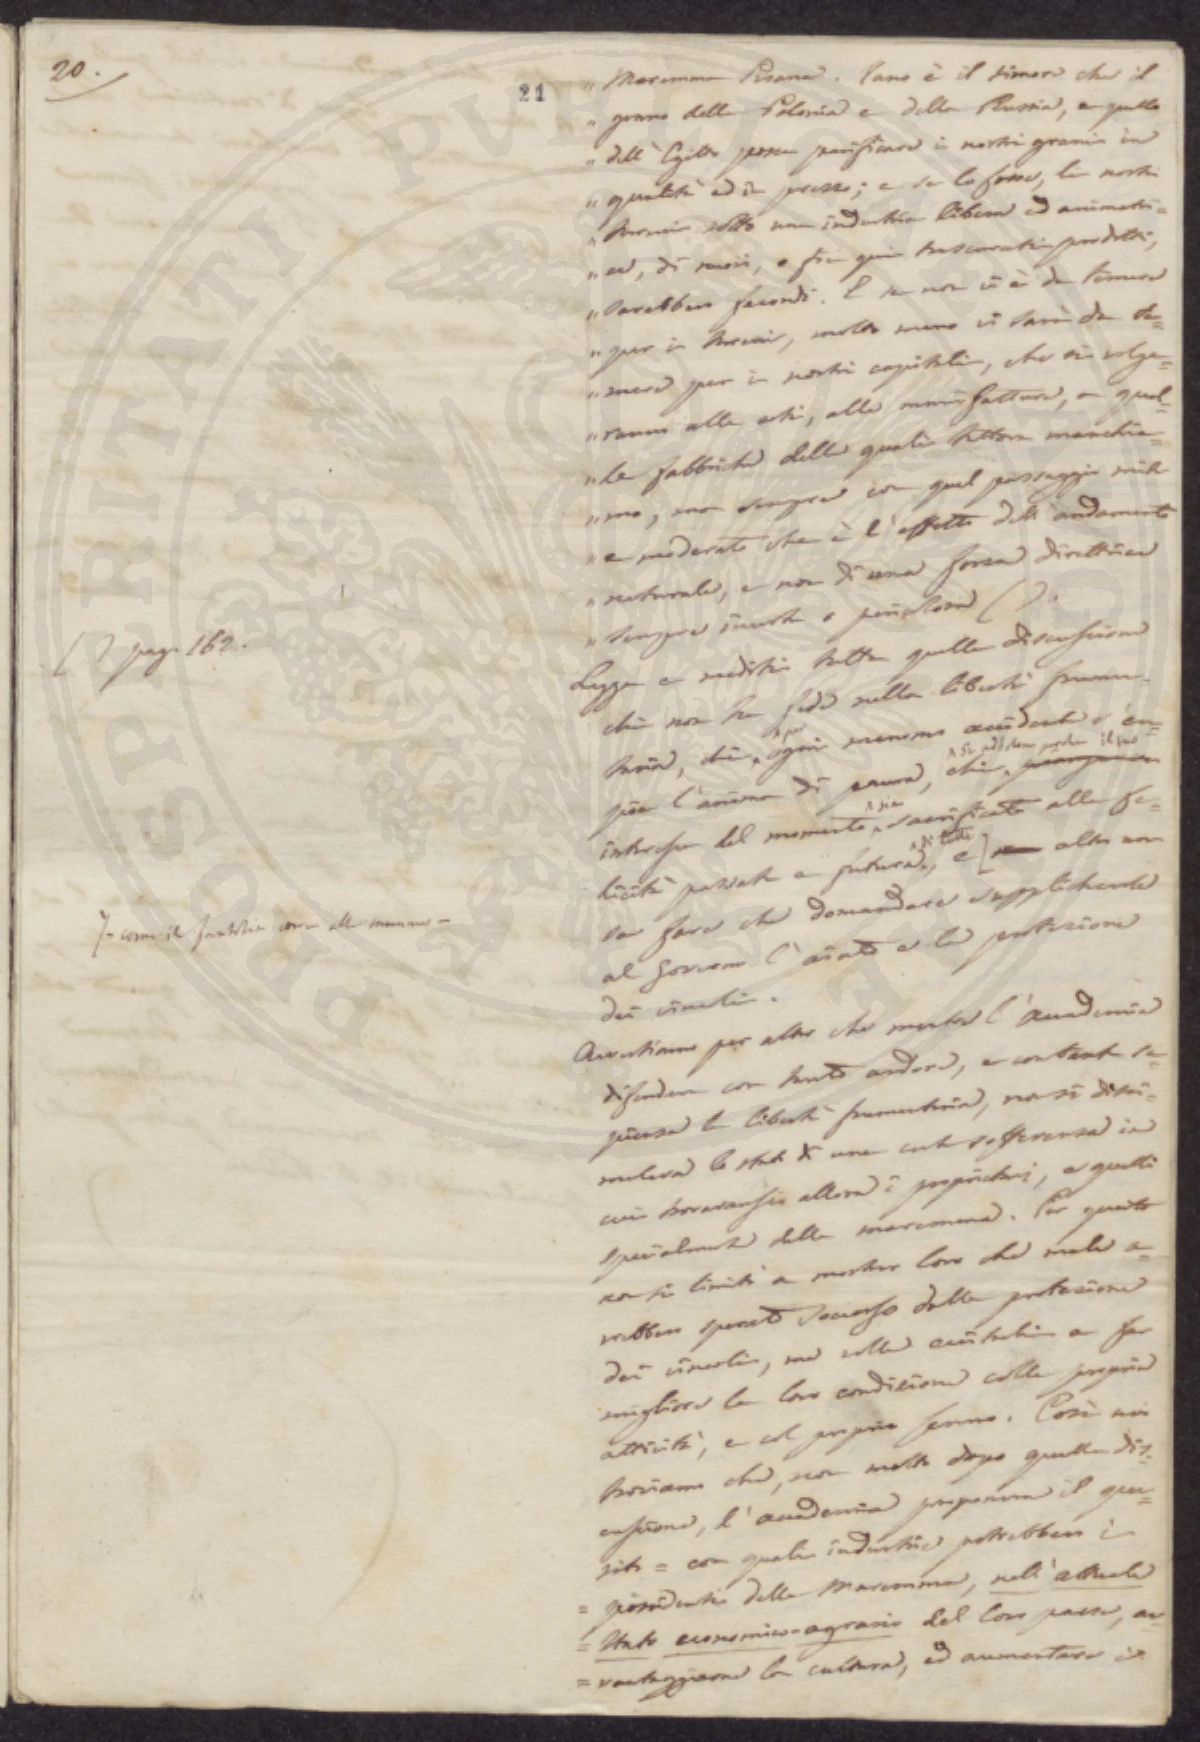 20.
21
„ Maremma Pisana. Vano è il timore che il
„ grano della Polonia e della Russia, e quello
„ dell'Egitto possa parificare i nostri grani in
„ qualità ed in prezzo; e se lo fosse, li nostri
„ terreni sotto una industria libera ed animatri=
„ ce, di nuovi, o fin qui trascurati prodotti,
„ sarebbero fecondi. E se non vi è da temere
„ per i terreni, molto meno vi sarà da te=
„ mere per i nostri capitali, che si volge=
„ ranno alle arti, alle manifatture, a quel=
„ le fabbriche delle quali tuttora manchia=
„ mo, ma sempre con quel passaggio mite
„ e moderato che è l'effetto dell'andamento
„ naturale, e non di una forza direttrice
„ sempre incerta e pericolosa ( ).
( ) pag. 162.
Legga e mediti tutta quella discussione
chi non ha fede nella libertà frumen-
taria, chi, per ogni menomo accidente s'em=
pie l'animo di paura, chi, perchè il suo
interesse del momento, sia sacrificato alla fe=
licità passata e futura, di tutti, e [ altro non
7- come il fanciullo corre alla mamma -
sa fare che domandare supplichevole
al Governo l'aiuto e la protezione
dei vincoli.
Avvertiamo per altro che mentre l'Accademia
difendeva con tanto ardore, e con tanta sa=
pienza la libertà frumentaria, non si dissi=
mulava lo stato di una certa sofferenza in
cui trovavansi allora i proprietarj, e quelli
specialmente della maremma. Per questo
non si limitò a mostrar loro che male a=
vrebbero sperato soccorso dalla protezione
dei vincoli, ma volle eccitarli a far
migliore la loro condizione colla propria
attività, e col proprio senno. Così noi
troviamo che, non molto dopo quella dis=
cussione, l'Accademia proponeva il que=
sito = con quali industrie potrebbero i
= possidenti della Maremma, nell'attuale
= Stato economico-agrario del loro paese, av=
= vantaggiarne la cultura, ed aumentare i